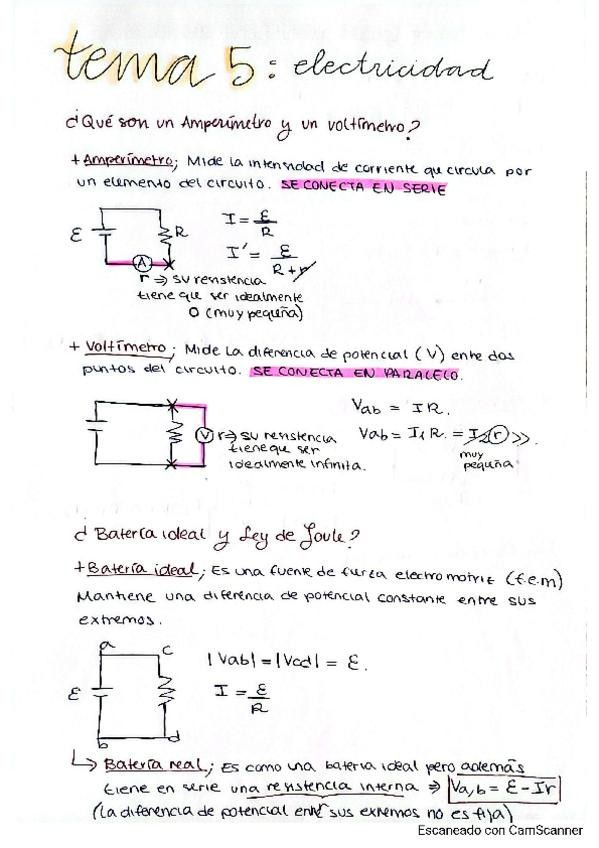 tema 5: electricidad
¿Qué son un Amperímetro y un voltímetro?
+ Amperímetro; Mide la intensidad de corriente que circula por
un elemento del circuito. SE CONECTA EN SERIE
ε R A
I = ε/R
I' = ε/(R+r)
r ⇒ su resistencia
tiene que ser idealmente
0 (muy pequeña)
+ Voltímetro; Mide la diferencia de potencial (V) entre dos
puntos del circuito. SE CONECTA EN PARALELO.
Vab = IR.
V r ⇒ su resistencia
tiene que ser
idealmente infinita.
Vab = I₁R = I₂ r >>.
muy
pequeña
¿Batería ideal y Ley de Joule?
+ Batería ideal; Es una fuente de fuerza electromotriz (f.e.m)
Mantiene una diferencia de potencial constante entre sus
extremos.
a c
ε
b d
|Vab| = |Vcd| = ε.
I = ε/R
↳ Batería real; Es como una batería ideal pero además
tiene en serie una resistencia interna ⇒ Va,b = ε - Ir
(la diferencia de potencial entre sus extremos no es fija)
Escaneado con CamScanner